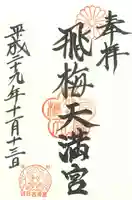 奉拝
飛梅天満宮
平成二十九年十一月十三日